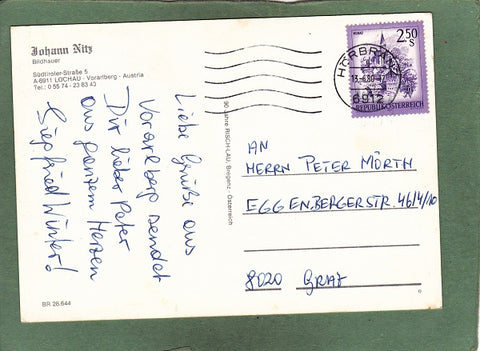 Johann Nitz
Bildhauer
Südtiroler-Straße 5
A-6911 LOCHAU - Vorarlberg - Austria
Tel.: 0 55 74 - 23 83 43
Liebe Grüße aus
Vorarlberg sendet
Dir lieber Peter
aus ganzem Herzen
Siegfried Winter!
BR 26.644
90 Jahre RISCH-LAU, Bregenz · Österreich
2.50
S
REPUBLIK ÖSTERREICH
HÖRBRANZ
6912
AN
HERRN PETER MÖRTH
EGGENBERGERSTR. 46/4/10
8020 GRAZ